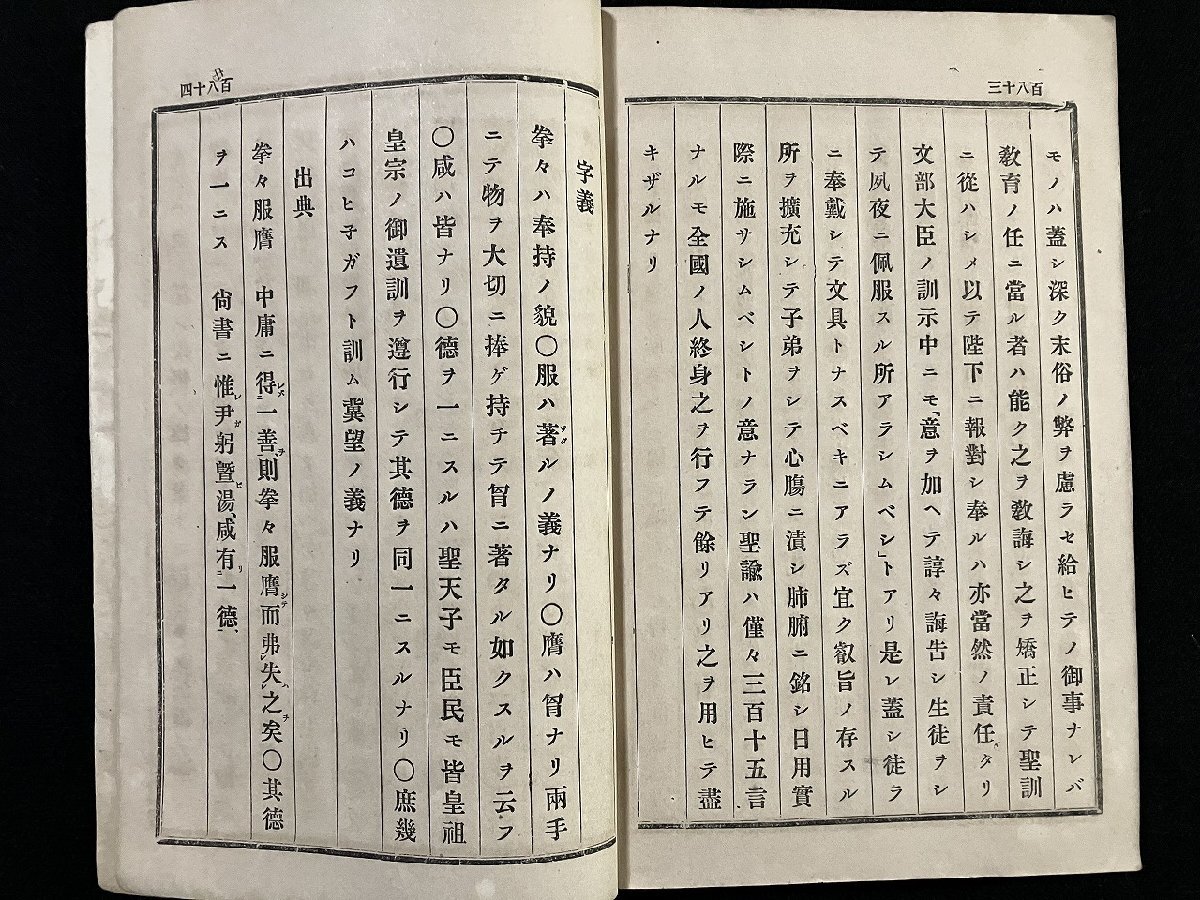 百八十三
モノハ蓋シ深ク末俗ノ弊ヲ慮ラセ給ヒテノ御事ナレバ
敎育ノ任ニ當ル者ハ能ク之ヲ敎誨シ之ヲ矯正シテ聖訓
ニ從ハシメ以テ陛下ニ報對シ奉ルハ亦當然ノ責任タリ
文部大臣ノ訓示中ニモ「意ヲ加ヘテ諄々誨吿シ生徒ヲシ
テ夙夜ニ佩服スル所アラシムベシ」トアリ是レ蓋シ徒ラ
ニ奉戴シテ文具トナスベキニアラズ宜ク叡旨ノ存スル
所ヲ擴充シテ子弟ヲシテ心膓ニ漬シ肺腑ニ銘シ日用實
際ニ施サシムベシトノ意ナラン聖諭ハ僅々三百十五言
ナルモ全國ノ人終身之ヲ行フテ餘リアリ之ヲ用ヒテ盡
キザルナリ
百八十四
字義
拳々ハ奉持ノ貌〇服ハ著ルノ義ナリ〇膺ハ胷ナリ兩手
ニテ物ヲ大切ニ捧ゲ持チテ胷ニ著タル如クスルヲ云フ
〇咸ハ皆ナリ〇德ヲ一ニスルハ聖天子モ臣民モ皆皇祖
皇宗ノ御遺訓ヲ遵行シテ其德ヲ同一ニスルナリ〇庶幾
ハコヒ子ガフト訓ム冀望ノ義ナリ
出典
拳々服膺 中庸ニ得一善則拳々服膺而弗失之矣〇其德
ヲ一ニス 尙書ニ惟尹躬曁湯、咸有一德、